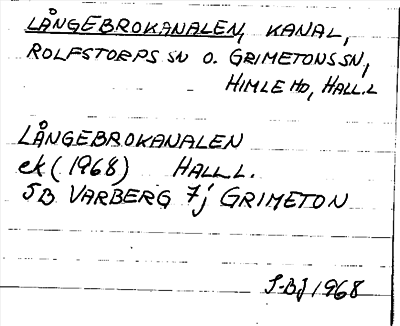 LÅNGEBROKANALEN, KANAL,
ROLFSTORPS SN O. GRIMETONS SN,
HIMLE HD, HALL.L
LÅNGEBROKANALEN
ek (1968) HALL.L.
5B VARBERG 7j GRIMETON
S-BJ 1968